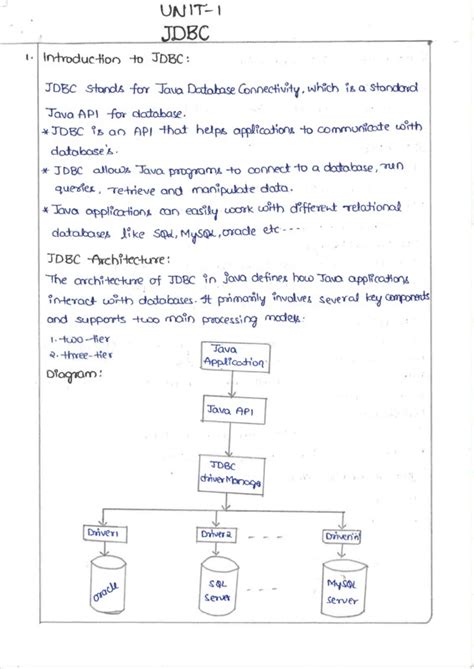 UNIT-1
JDBC
1. Introduction to JDBC:
JDBC stands for Java Database Connectivity, which is a standard
Java API for database.
* JDBC is an API that helps applications to communicate with
database's.
* JDBC allows Java programs to connect to a database, run
queries, retrieve and manipulate data.
* Java applications can easily work with different relational
databases like SQL, MySQL, oracle etc ---
JDBC Architecture:
The architecture of JDBC in java defines how Java applications
interact with databases. It primarily involves several key components
and supports two main processing models.
1. two-tier
2. three-tier
Diagram:
Java
Application
Java API
JDBC
driver Manage
Driver1 Driver 2 --- Driver'n'
oracle
SQL
server
---
MySQL
server